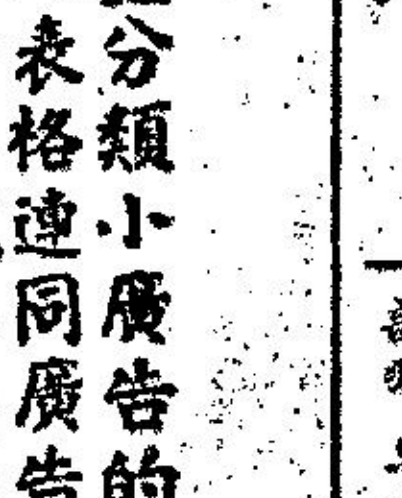 分類小廣告的
表格連同廣告